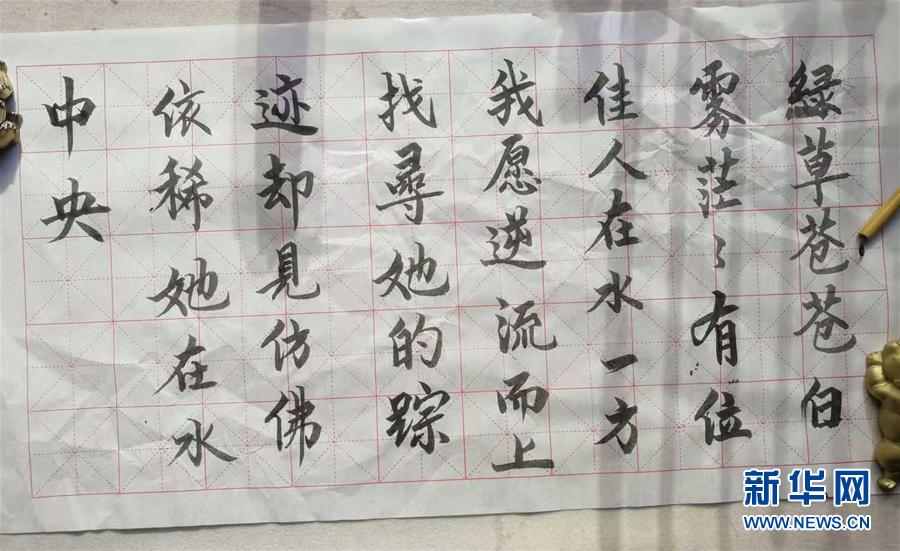 綠草苍苍白
雾茫〻有位
佳人在水一方
我愿逆流而上
找尋她的踪
迹却見仿佛
依稀她在水
中央
新华网
WWW.NEWS.CN